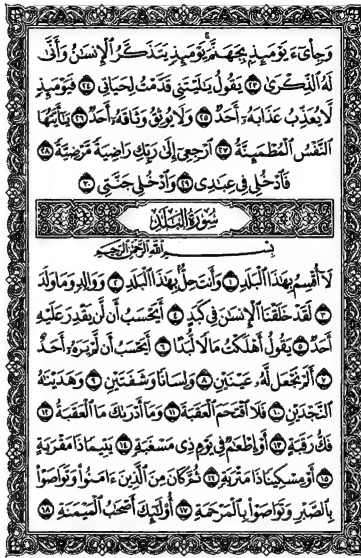 وَجِا۟ىٓءَ يَوْمَئِذٍۭ بِجَهَنَّمَ ۚ يَوْمَئِذٍ يَتَذَكَّرُ ٱلْإِنسَٰنُ وَأَنَّىٰ
لَهُ ٱلذِّكْرَىٰ ٢٣ يَقُولُ يَٰلَيْتَنِى قَدَّمْتُ لِحَيَاتِى ٢٤ فَيَوْمَئِذٍ
لَّا يُعَذِّبُ عَذَابَهُۥٓ أَحَدٌ ٢٥ وَلَا يُوثِقُ وَثَاقَهُۥٓ أَحَدٌ ٢٦ يَٰٓأَيَّتُهَا
ٱلنَّفْسُ ٱلْمُطْمَئِنَّةُ ٢٧ ٱرْجِعِىٓ إِلَىٰ رَبِّكِ رَاضِيَةً مَّرْضِيَّةً ٢٨
فَٱدْخُلِى فِى عِبَٰدِى ٢٩ وَٱدْخُلِى جَنَّتِى ٣٠
سُورَةُ ٱلْبَلَدِ
بِسْمِ ٱللَّهِ ٱلرَّحْمَٰنِ ٱلرَّحِيمِ
لَآ أُقْسِمُ بِهَٰذَا ٱلْبَلَدِ ١ وَأَنتَ حِلٌّۢ بِهَٰذَا ٱلْبَلَدِ ٢ وَوَالِدٍ وَمَا وَلَدَ
٣ لَقَدْ خَلَقْنَا ٱلْإِنسَٰنَ فِى كَبَدٍ ٤ أَيَحْسَبُ أَن لَّن يَقْدِرَ عَلَيْهِ
أَحَدٌ ٥ يَقُولُ أَهْلَكْتُ مَالًا لُّبَدًا ٦ أَيَحْسَبُ أَن لَّمْ يَرَهُۥٓ أَحَدٌ
٧ أَلَمْ نَجْعَل لَّهُۥ عَيْنَيْنِ ٨ وَلِسَانًا وَشَفَتَيْنِ ٩ وَهَدَيْنَٰهُ
ٱلنَّجْدَيْنِ ١٠ فَلَا ٱقْتَحَمَ ٱلْعَقَبَةَ ١١ وَمَآ أَدْرَىٰكَ مَا ٱلْعَقَبَةُ ١٢
فَكُّ رَقَبَةٍ ١٣ أَوْ إِطْعَٰمٌ فِى يَوْمٍ ذِى مَسْغَبَةٍ ١٤ يَتِيمًا ذَا مَقْرَبَةٍ
١٥ أَوْ مِسْكِينًا ذَا مَتْرَبَةٍ ١٦ ثُمَّ كَانَ مِنَ ٱلَّذِينَ ءَامَنُوا۟ وَتَوَاصَوْا۟
بِٱلصَّبْرِ وَتَوَاصَوْا۟ بِٱلْمَرْحَمَةِ ١٧ أُو۟لَٰٓئِكَ أَصْحَٰبُ ٱلْمَيْمَنَةِ ١٨